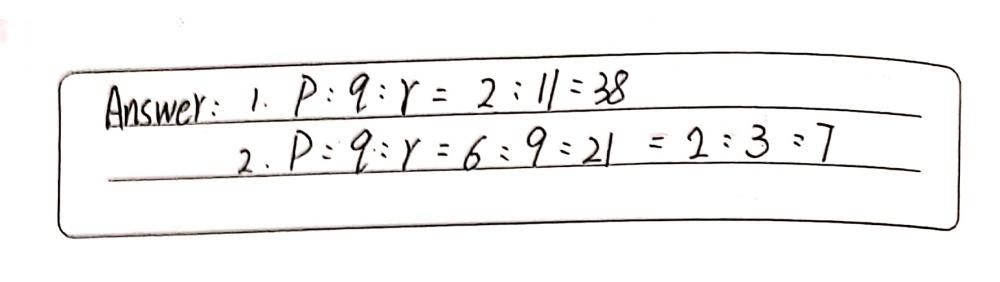 Answer: 1. P : q : r = 2 : 11 = 38
2. P = q : r = 6 : 9 = 21 = 2 : 3 : 7